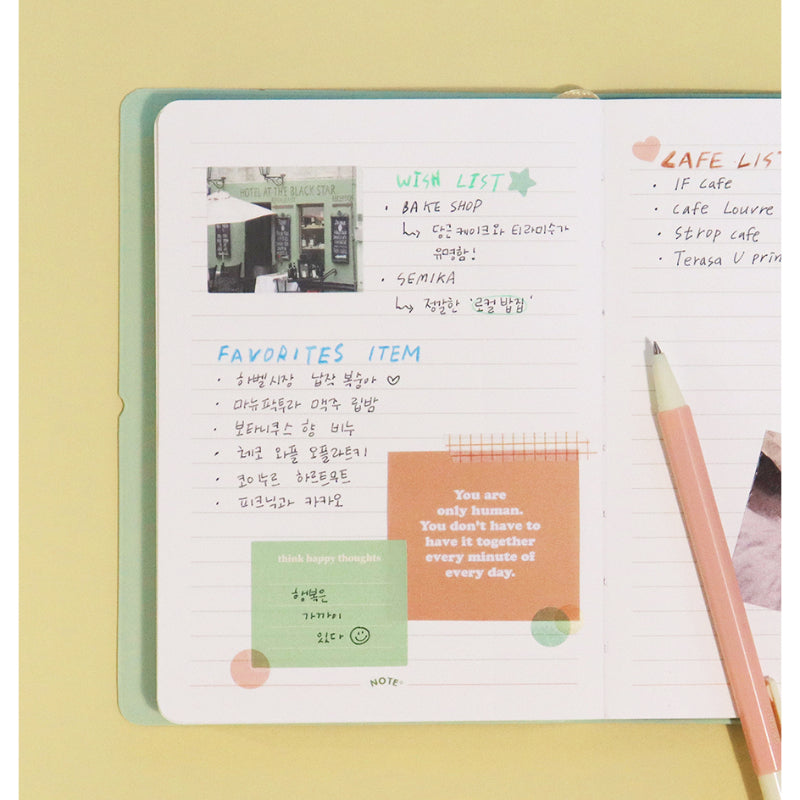 HOTEL AT THE BLACK STAR
WISH LIST
· BAKE SHOP
↳ 당근케이크와 티라미수가
유명함!
· SEMIKA
↳ 정갈한 '로컬 밥집'
FAVORITES ITEM
· 하벨시장 납작 복숭아 ♡
· 마뉴팍투라 맥주 립밤
· 보타니쿠스 향 비누
· 체코 와플 오플라트키
· 코이누르 하르트무트
· 피크닉과 카카오
You are
only human.
You don't have to
have it together
every minute of
every day.
think happy thoughts
행복은
가까이
있다
NOTE
CAFE LIST
· IF cafe
· cafe Louvre
· Strop cafe
· Terasa U prin